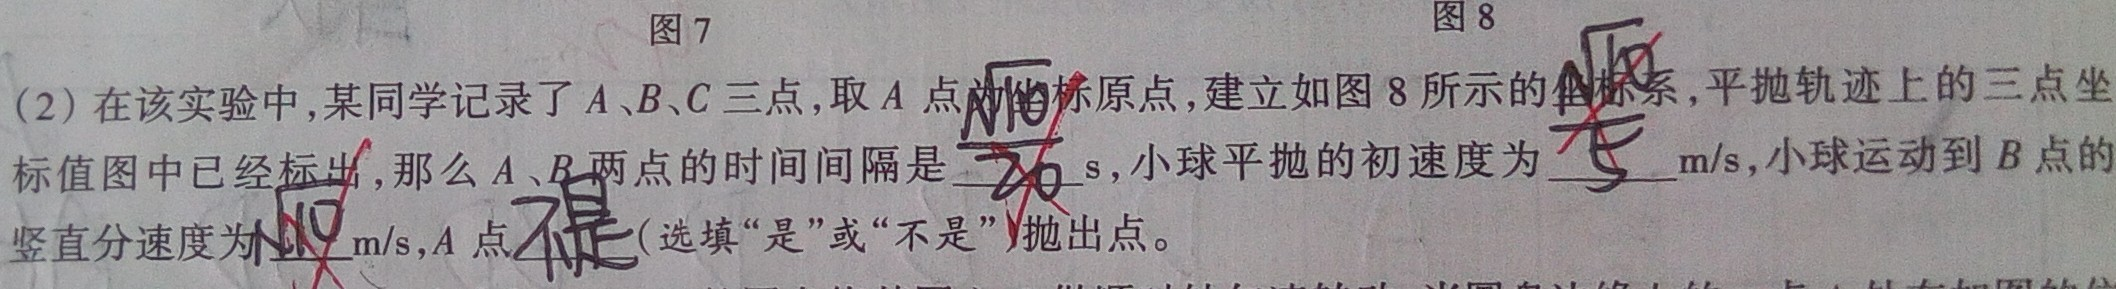 图7 图8
(2)在该实验中,某同学记录了A、B、C三点,取A点为坐标原点,建立如图8所示的坐标系,平抛轨迹上的三点坐
标值图中已经标出,那么A、B两点的时间间隔是 √10/20 s,小球平抛的初速度为 √10/5 m/s,小球运动到B点的
竖直分速度为 √10 m/s,A点 不是 (选填“是”或“不是”)抛出点。